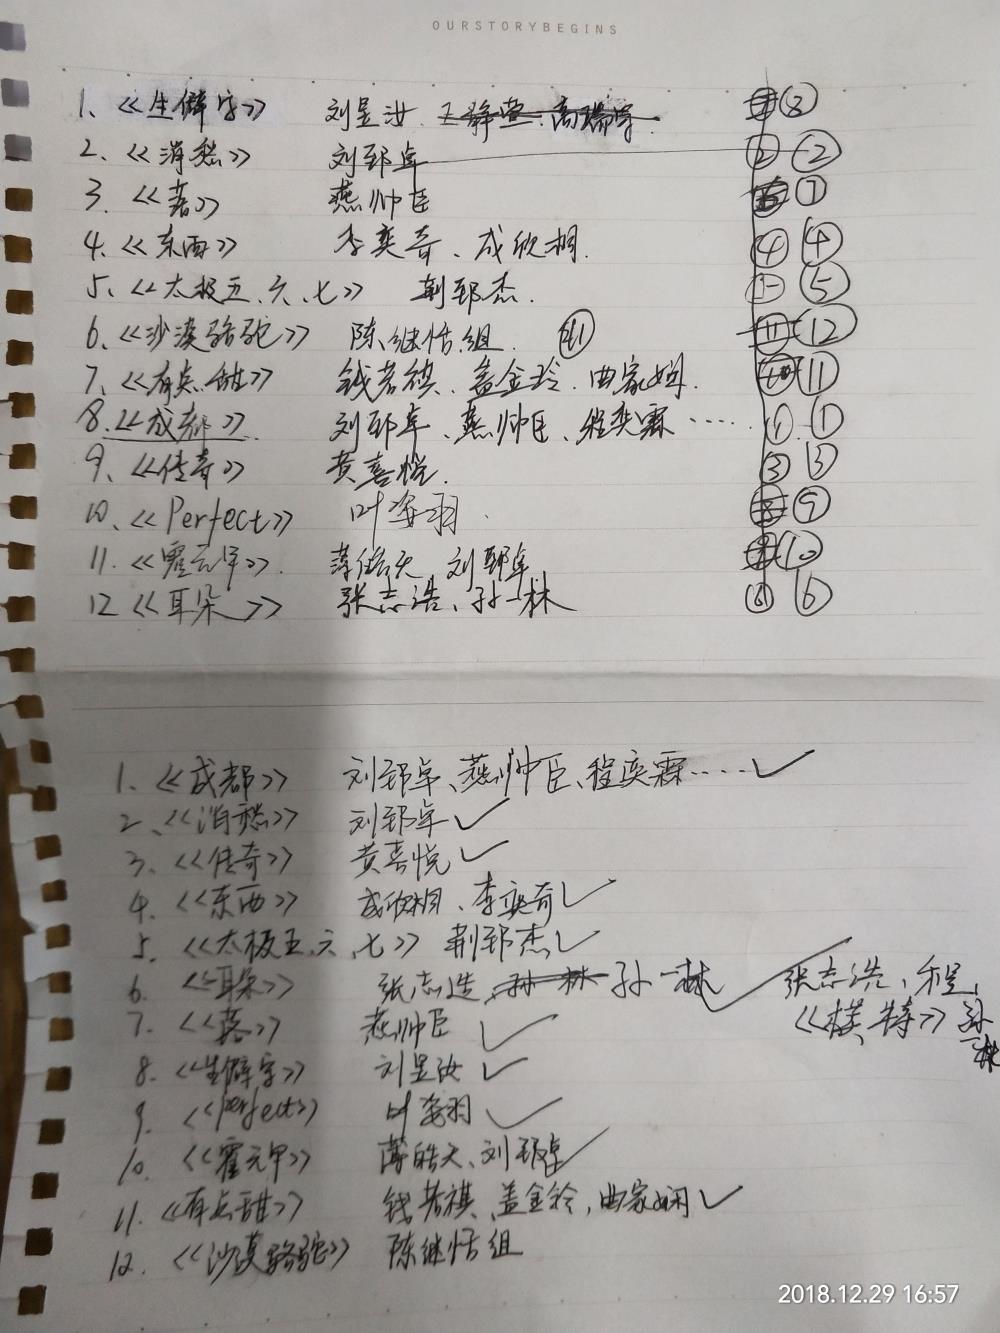 OURSTORYBEGINS
1、《生僻字》 刘昱汝、王静莹、高瑞 ⑧
2、《消愁》 刘郅卓 ② ②
3、《落》 燕帅臣 ⑦
4、《东西》 李奕奇、成欣桐. ④ ④
5、《太极五、六、七》 荆郅杰. ⑤
6、《沙漠骆驼》 陈继恬组 ⑪ ⑫
7、《有点甜》 钱若祺、盖金玲、曲家娴. ⑪
8.《成都》. 刘郅卓、燕帅臣、程奕霖····· ① ①
9、《传奇》 黄喜悦. ③ ③
10、《Perfect》 叶姿羽. ⑨
11、《霍元甲》. 薄皓天、刘郅卓 ⑩
12《耳朵》 张志浩、孙一林 ⑥ ⑥
1.《成都》 刘郅卓、燕帅臣、程奕霖···· ✓
2、《消愁》 刘郅卓 ✓
3、《传奇》 黄喜悦 ✓
4、《东西》 成欣桐、李奕奇 ✓
5、《太极五、六、七》 荆郅杰 ✓
6、《耳朵》 张志浩、孙一林 孙一林 ✓ 张志浩、程、
《模特》孙一林
7、《落》 燕帅臣 ✓
8.《生僻字》 刘昱汝 ✓
9、《Perfect》 叶姿羽 ✓
10、《霍元甲》 薄皓天、刘郅卓 ✓
11.《有点甜》 钱若祺、盖金玲、曲家娴 ✓
12、《沙漠骆驼》 陈继恬组
2018.12.29 16:57